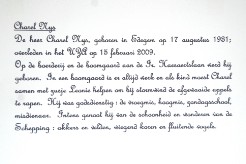 Charel Nys
De heer Charel Nys, geboren in Edegem op 17 augustus 1931;
overleden in het UZA op 15 februari 2009.
Op de boerderij en de boomgaard aan de Ir. Haesaertslaan werd hij
geboren. In een boomgaard is er altijd werk en als kind moest Charel
samen met zusje Leonie helpen om bij stormwind de afgewaaide appels
te rapen. Hij was godsdienstig : de vroegmis, hoogmis, zondagsschool,
misdienaar. Intens genoot hij van de schoonheid en wonderen van de
Schepping : akkers en velden, wiegend koren en fluitende vogels.